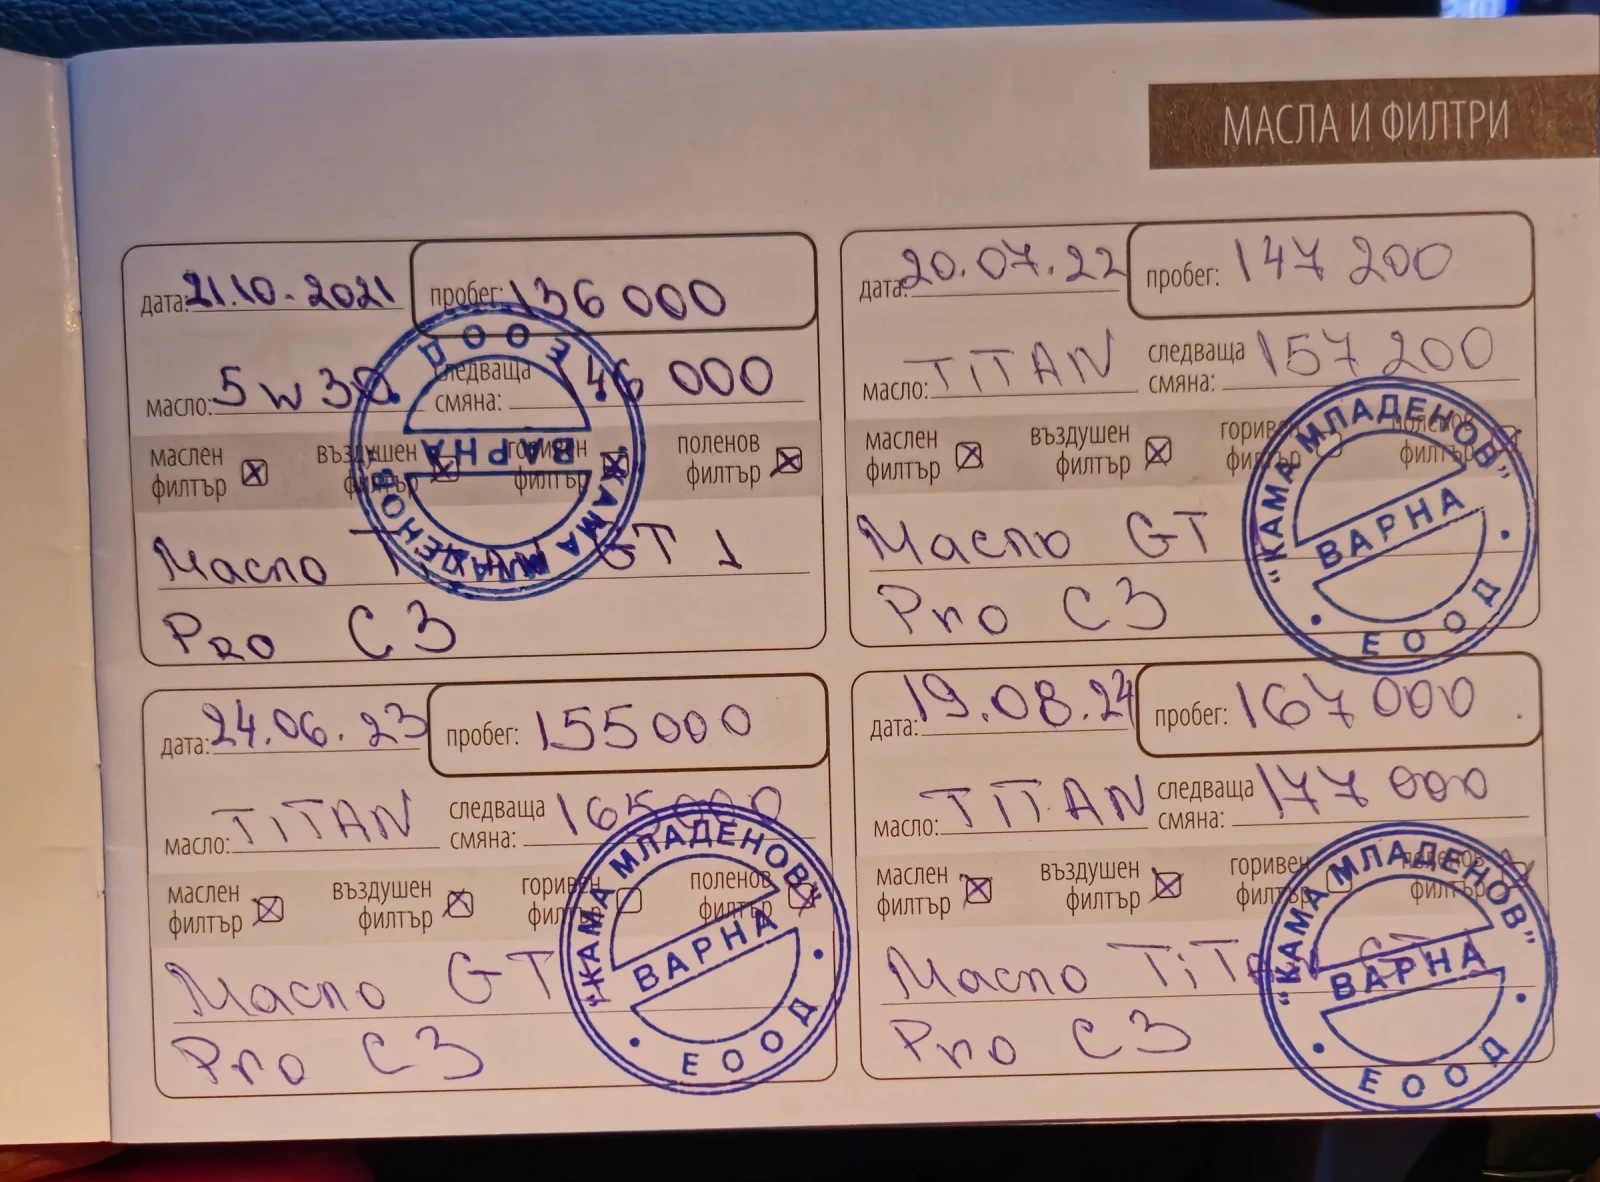 МАСЛА И ФИЛТРИ
дата: 21.10.2021 пробег: 136 000
масло: 5w30 следваща смяна: 146 000
маслен филтър въздушен филтър горивен филтър поленов филтър
Масло GT 1
Pro C3
"КАМА МЛАДЕНОВ" ЕООД
ВАРНА
дата: 20.07.22 пробег: 147 200
масло: TiTAN следваща смяна: 157 200
маслен филтър въздушен филтър горивен филтър поленов филтър
Масло GT
Pro C3
"КАМА МЛАДЕНОВ" ЕООД
ВАРНА
дата: 24.06.23 пробег: 155000
масло: TiTAN следваща смяна: 165000
маслен филтър въздушен филтър горивен филтър поленов филтър
Масло GT
Pro C3
"КАМА МЛАДЕНОВ" ЕООД
ВАРНА
дата: 19.08.24 пробег: 167 000
масло: TiTAN следваща смяна: 177 000
маслен филтър въздушен филтър горивен филтър поленов филтър
Масло TiTAN GT
Pro C3
"КАМА МЛАДЕНОВ" ЕООД
ВАРНА